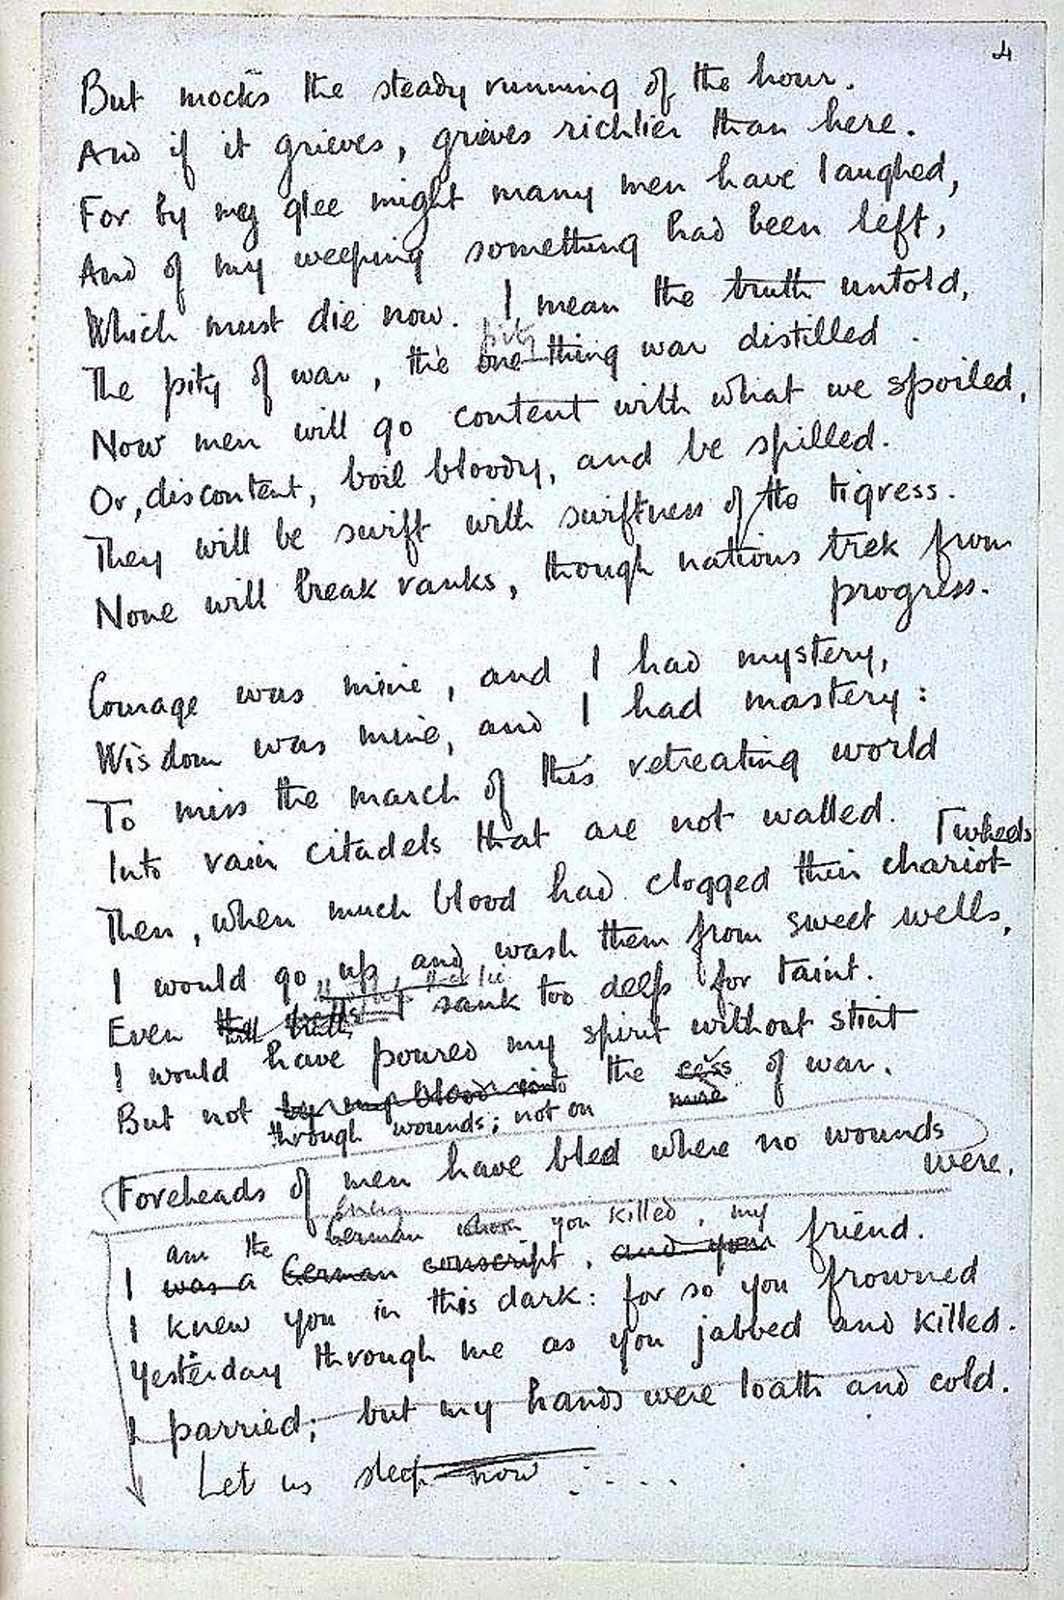 4
But mocks the steady running of the hour.
And if it grieves, grieves richlier than here.
For by my glee might many men have laughed,
And of my weeping something had been left,
Which must die now. I mean the truth untold,
pity
The pity of war, the one thing war distilled.
Now men will go content with what we spoiled,
Or, discontent, boil bloody, and be spilled.
They will be swift with swiftness of the tigress.
None will break ranks, though nations trek from
progress.
Courage was mine, and I had mystery,
Wisdom was mine, and I had mastery:
To miss the march of this retreating world
Into vain citadels that are not walled.
wheels
Then, when much blood had clogged their chariot-
I would go up and wash them from sweet wells,
Even sank too deep for taint.
I would have poured my spirit without stint
But not by my blood into the cess of war.
through wounds; not on
Foreheads of men have bled where no wounds
were.
enemy
am the German whom you killed, my
I was a German conscript, and your friend.
I knew you in this dark: for so you frowned
Yesterday through me as you jabbed and killed.
I parried; but my hands were loath and cold.
Let us sleep now . . . . .